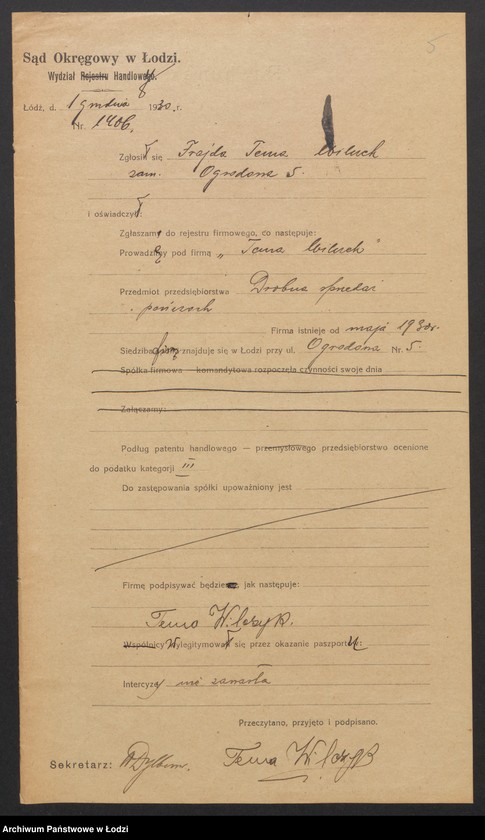 5
Sąd Okręgowy w Łodzi.
Wydział Rejestru Handlowego.
Łódź, d. 1 grudnia 1930 r.
Nr. 1406.
Zgłosił się Frajda Tema
zam. Ogrodowa 5.
i oświadczył:
Zgłaszam do rejestru firmowego, co następuje:
Prowadzę pod firmą „Tema
Przedmiot przedsiębiorstwa Drobna sprzedaż
pończoch
Firma istnieje od maja 1930 r.
Siedziba firmy znajduje się w Łodzi przy ul. Ogrodowa Nr. 5.
Spółka firmowa — komandytowa rozpoczęła czynności swoje dnia
Załączamy:
Podług patentu handlowego — przemysłowego przedsiębiorstwo ocenione
do podatku kategorji III
Do zastępowania spółki upoważniony jest
Firmę podpisywać będzie, jak następuje:
Tema Wilczyk.
Wspólnicy Wylegitymował się przez okazanie paszportu:
Intercyzy nie zawarła
Przeczytano, przyjęto i podpisano.
Sekretarz: Tema Wilczyk
Archiwum Państwowe w Łodzi